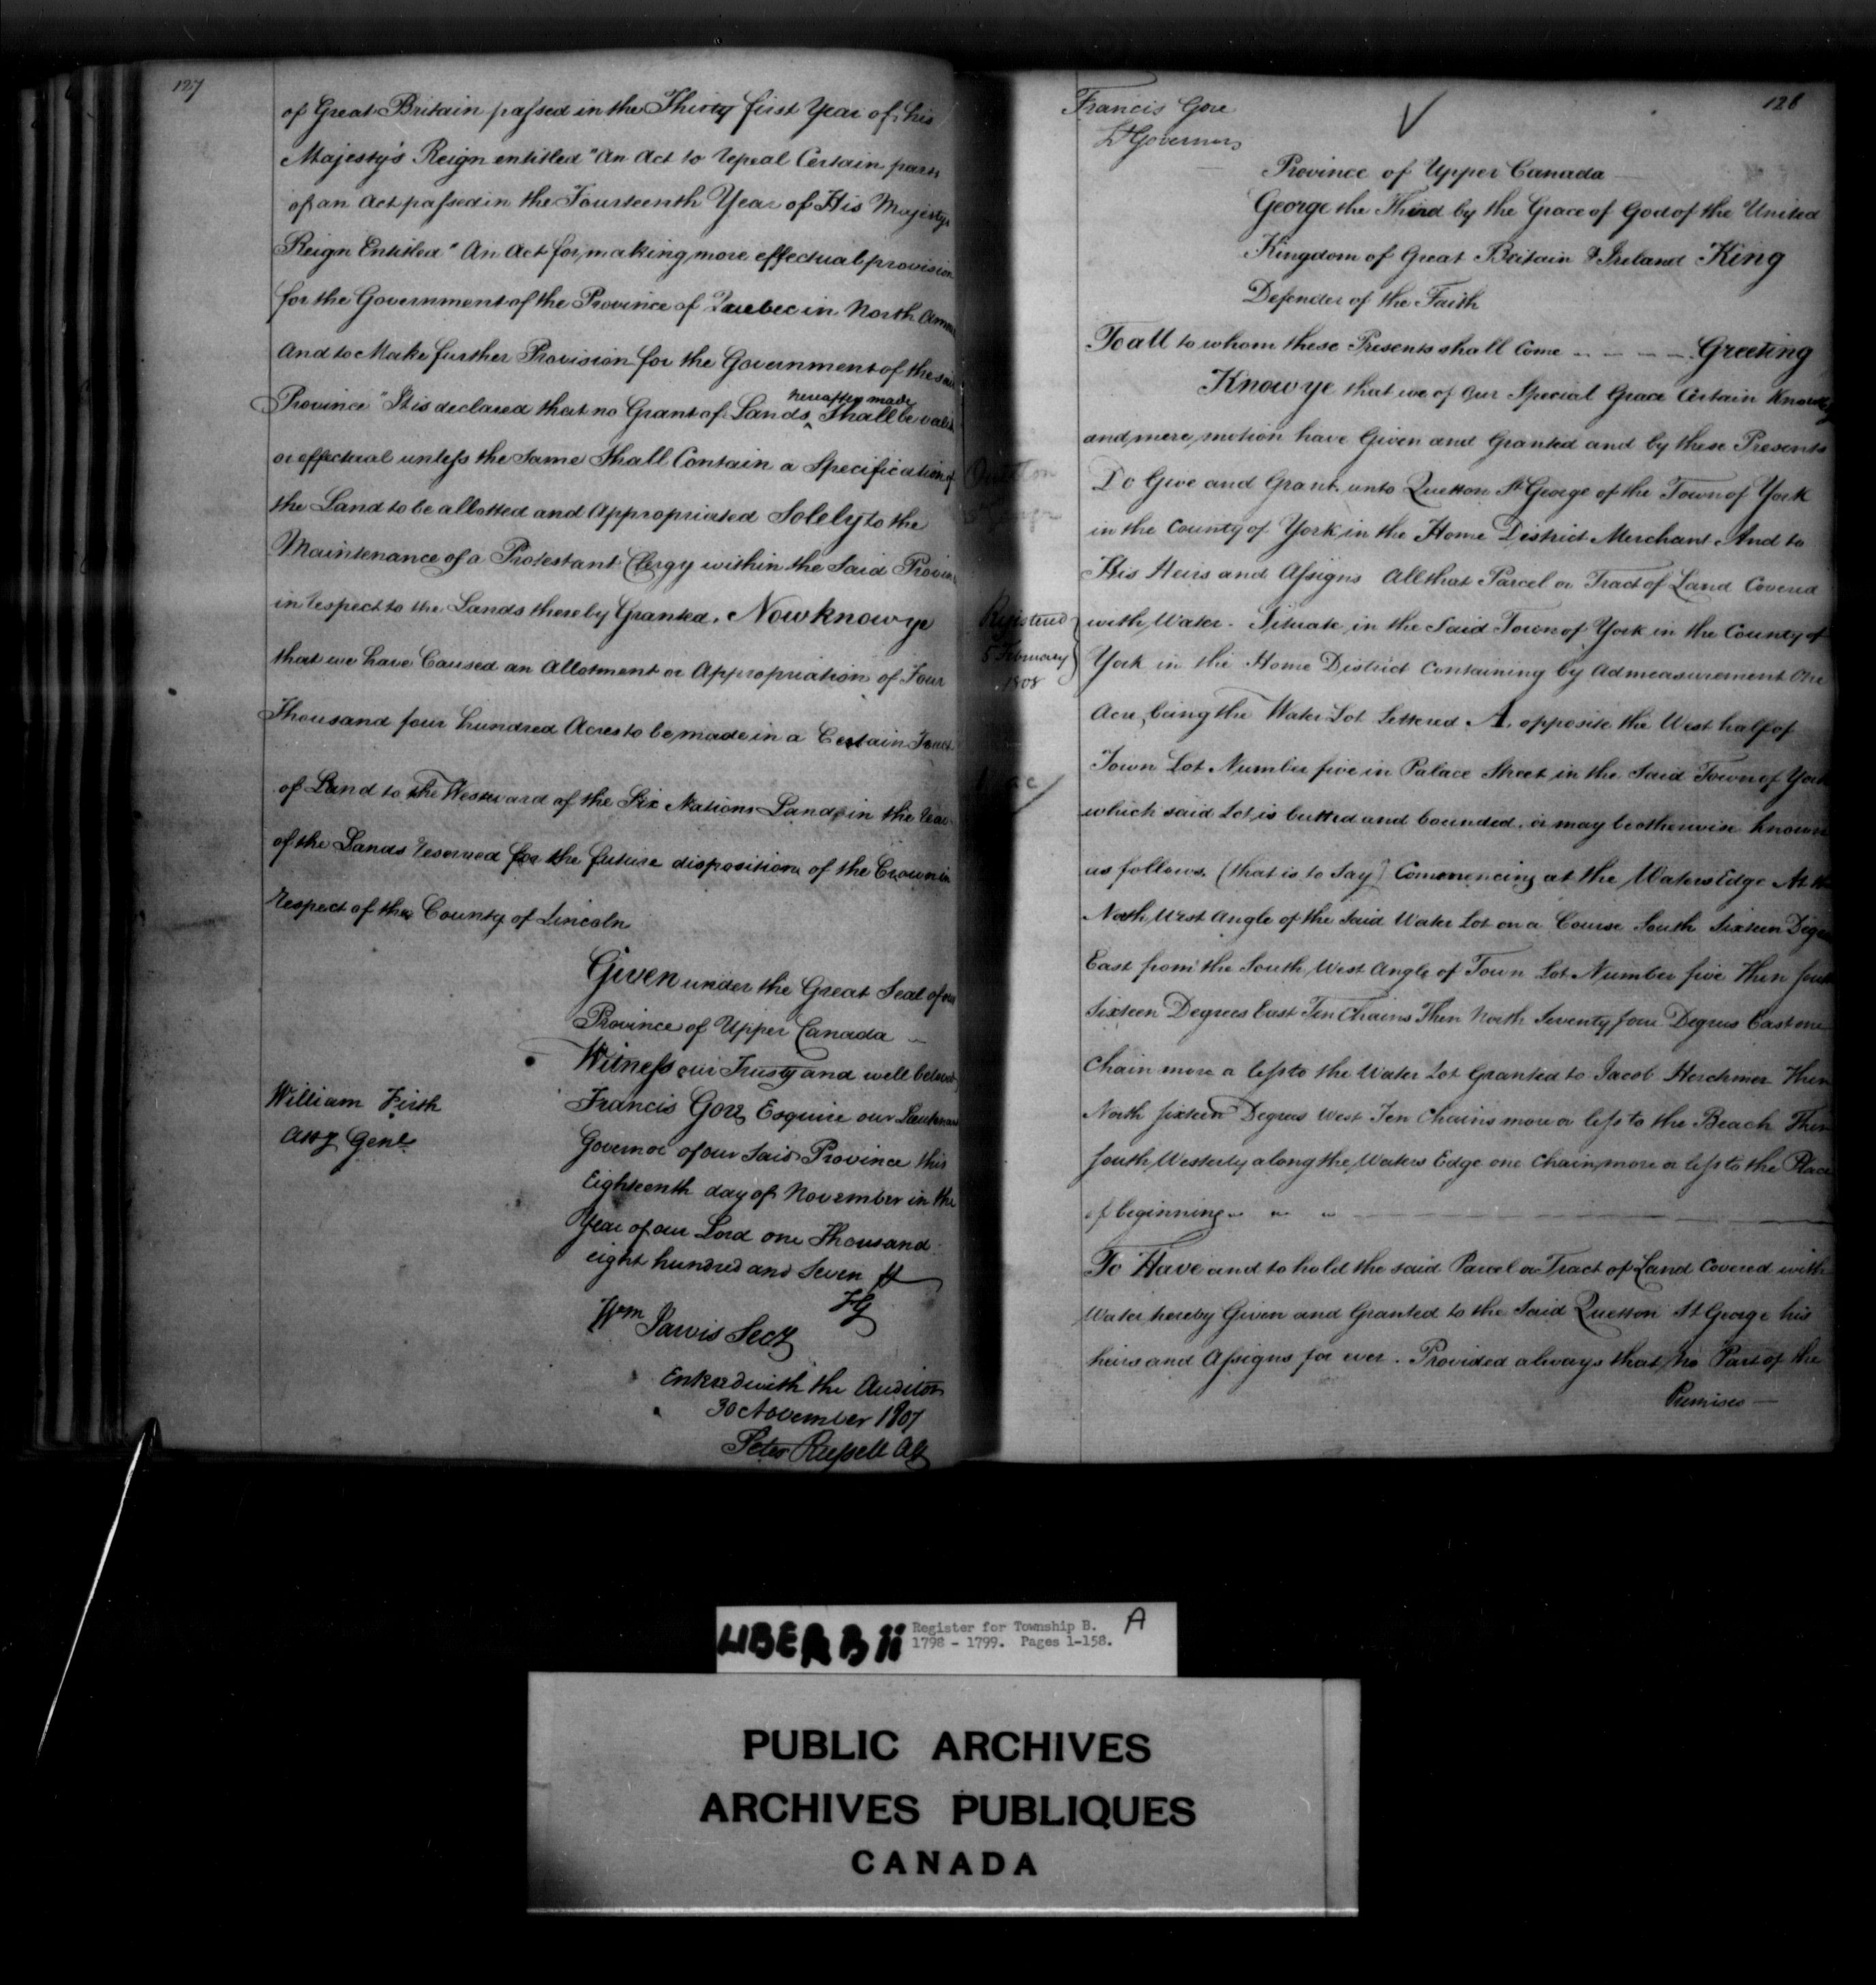 127
of Great Britain passed in the Thirty first Year of his
Majesty's Reign entitled "An Act to repeal Certain parts
of an Act passed in the Fourteenth Year of His Majestys
Reign Entitled "An Act for making more effectual provision
for the Government of the Province of Quebec in North Amer
And to Make further Provision for the Government of the said
hereafter made
Province" It is declared that no Grant of Lands ^ Shall be valid
or effectual unless the Same Shall Contain a Specification of
the Land to be allotted and Appropriated Solely to the
Maintenance of a Protestant Clergy within the Said Provin
in respect to the Lands thereby Granted. Now know ye
that we have Caused an Allotment or Appropriation of Four
Thousand four hundred Acres to be made in a Certain Tract
of Land to the Westward of the Six Nations Lands in the rear
of the Lands reserved for the future disposition of the Crown in
respect of the County of Lincoln
Given under the Great Seal of our
Province of Upper Canada
Witness our Trusty and well beloved
William Firth
Atty Genl
Francis Gore Esquire our Lieutenant
Governor of our Said Province this
Eighteenth day of November in the
Year of our Lord one Thousand
eight hundred and Seven
FG
Wm Jarvis Secy
Entered with the Auditor
30 November 1807
Peter Russell
128
Francis Gore
Lt Governor
Province of Upper Canada
George the Third by the Grace of God of the United
Kingdom of Great Britain & Ireland King
Defender of the Faith
To all to whom these Presents shall Come - - - - - Greeting
Know ye that we of Our Special Grace Certain Knowledg
and mere motion have Given and Granted and by these Presents
Do Give and Grant unto Quetton St George of the Town of York
in the County of York in the Home District Merchant And to
His Heirs and Assigns All that Parcel or Tract of Land Covered
Registered
5 February
1808
with Water. Situate in the Said Town of York in the County of
York in the Home District Containing by Admeasurement One
Acre being the Water Lot Lettered A. opposite the West half of
Town Lot Number five in Palace Street in the Said Town of York
which said Lot is butted and bounded. or may be otherwise known
as follows. (that is to Say) Commencing at the Waters Edge At the
North West Angle of the Said Water Lot on a Course South Sixteen Degrees
East from the South West Angle of Town Lot Number five Then South
Sixteen Degrees East Ten Chains Then North Seventy four Degrees East one
Chain more or less to the Water Lot Granted to Jacob Herchmer Then
North sixteen Degrees West Ten Chains more or less to the Beach Then
South Westerly along the Waters Edge one Chain more or less to the Place
of beginning
To Have and to hold the said Parcel or Tract of Land Covered with
Water hereby Given and Granted to the Said Quetton St George his
heirs and Assigns for ever. Provided always that no Part of the
Premises
LIBER B 11
Register for Township B.
1798 - 1799. Pages 1-158.
A
PUBLIC ARCHIVES
ARCHIVES PUBLIQUES
CANADA